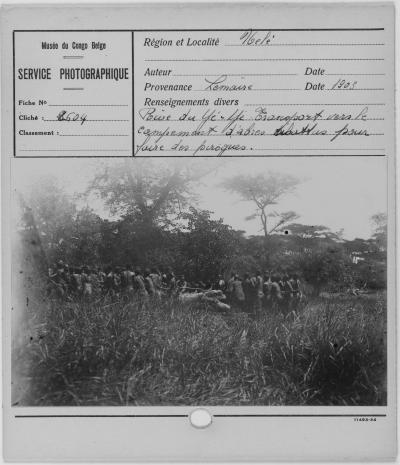 Musée du Congo Belge
SERVICE PHOTOGRAPHIQUE
Fiche No
Cliché : 2504
Classement :
Région et Localité Uele
Auteur Date
Provenance Lemaire Date 1903
Renseignements divers
du Yé-Yé Transport vers le
campement d'arbres abattus pour
faire des pirogues.
11493-24